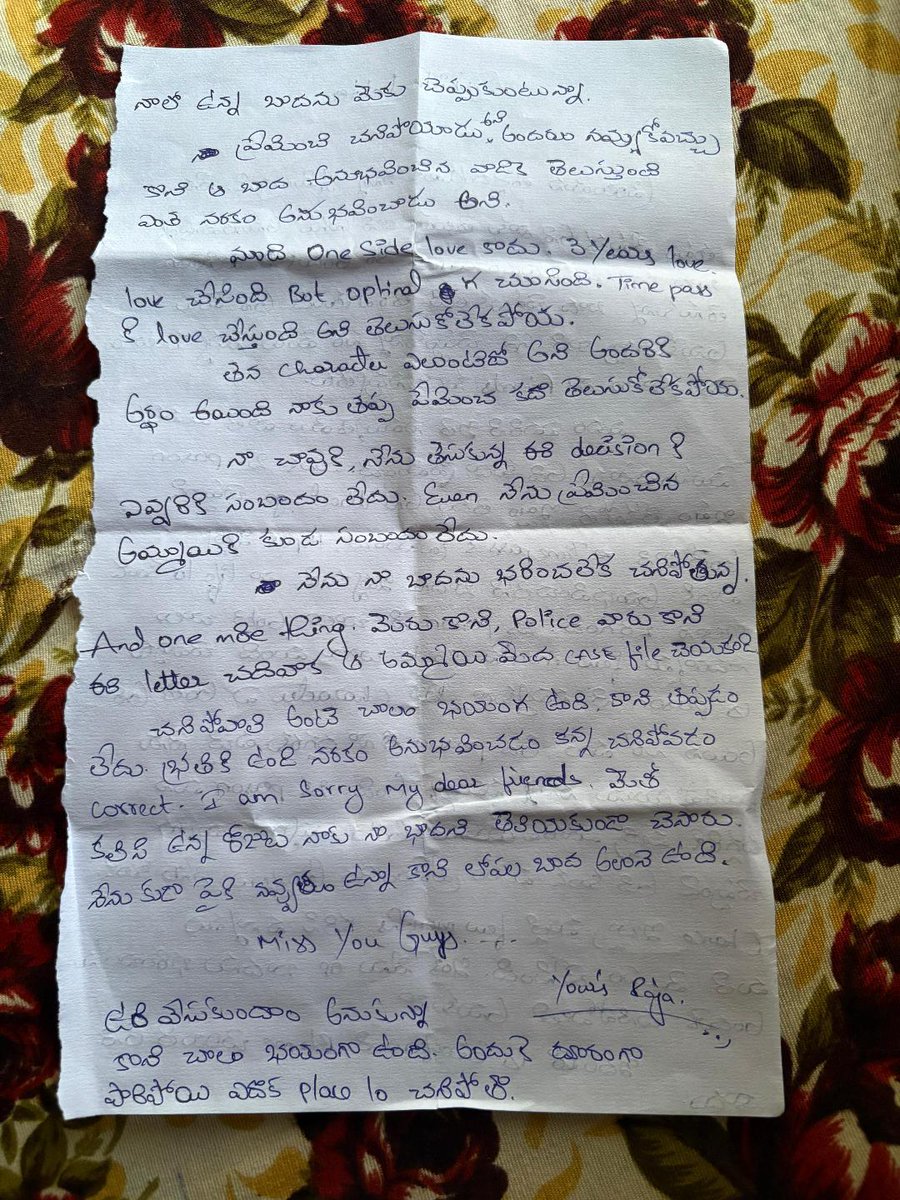 నాలో ఉన్న బాదను మీకు చెప్పుకుంటున్నా.
ప్రేమించి చనిపోయాడు అని అందరు నవ్వుకోవచ్చు
కాని ఆ బాద అనుభవించిన వాడికె తెలుస్తుంది
ఎంత నరకం అనుభవించాడు అని.
నాది One side love కాదు. 3 Years love.
love చేసింది But, optinal K చూసింది. Time pass
కి love చేస్తుంది అని తెలుసుకోలేకపోయ.
తన character ఎలాంటిదో అని అందరికి
అర్థం అయింది నాకు తప్ప ప్రేమించ కదా తెలుసుకోలేకపోయ.
నా చావుకి, నేను తీసుకున్న ఈ decision కి
ఎవ్వరికి సంబందం లేదు. Even నేను ప్రేమించిన
అమ్మాయికి కుడ సంబందం లేదు.
నేను నా బాదను భరించలేక చనిపోతున్న.
And one more thing. మీరు కాని, Police వారు కాని
ఈ letter చదివాక ఆ అమ్మాయి మీద case file చేయకండి
చనిపోవాలి అంటే చాలా భయంగ ఉంది. కాని తప్పడం
లేదు. బ్రతికి ఉండి నరకం అనుభవించడం కన్న చనిపోవడం
correct. I am sorry my dear friends. మీతో
కలిసి ఉన్న రోజులు నాకు నా బాదని తెలియకుండా చేసారు.
నేను కుడా పైకి నవ్వుతూ ఉన్నా కాని లోపల బాద అలానె ఉంది.
Miss You Guys.....
Your's Raja.
ఉరి వేసుకుందాం అనుకున్నా
కాని చాలా భయంగా ఉంది. అందుకె దూరంగా
పారిపోయి ఏదొక place lo చనిపోతా.